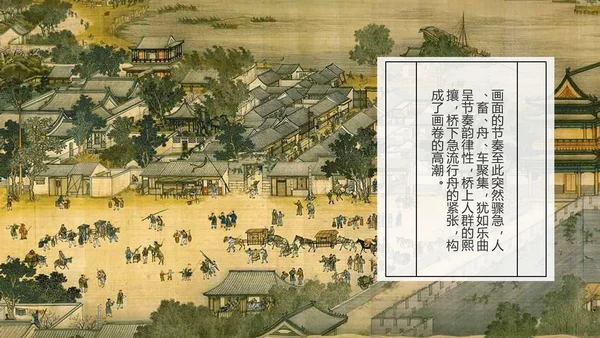 画面的节奏至此突然骤急，人
、畜、舟、车聚集，犹如乐曲
呈节奏韵律性，桥上人群的熙
攘，桥下急流行舟的紧张，构
成了画卷的高潮。